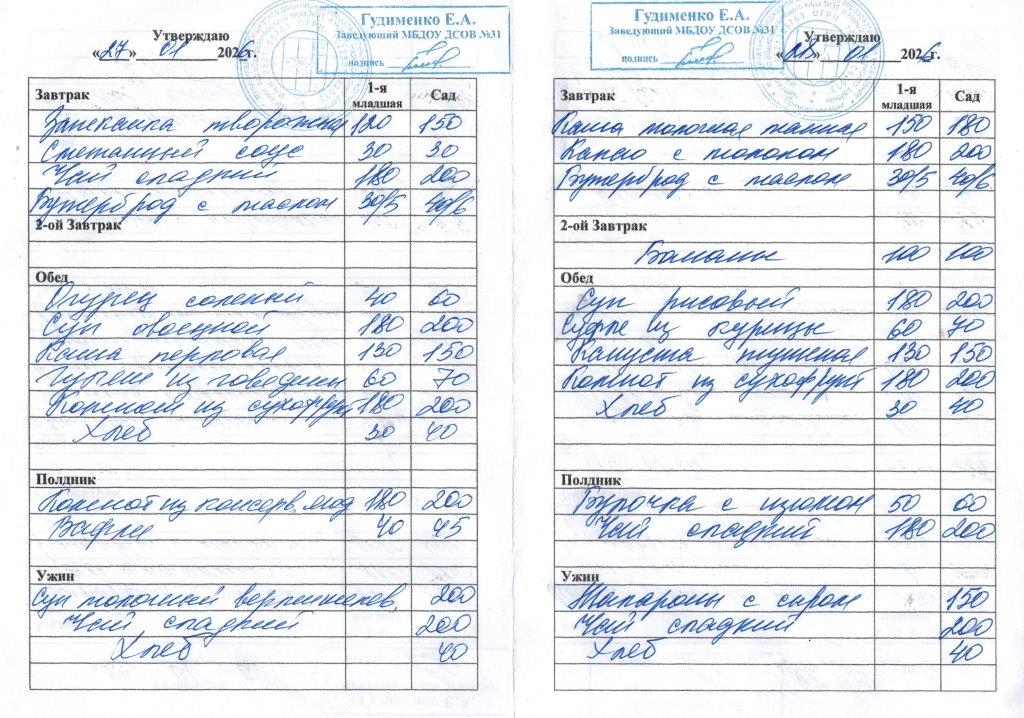 Гудименко Е.А.
Заведующий МБДОУ ДСОВ №31
подпись
Утверждаю
«27» 01 2026г.
Завтрак 1-я младшая Сад
Запеканка творожная 120 150
Сметанный соус 30 30
Чай сладкий 180 200
Бутерброд с маслом 30/5 40/6
2-ой Завтрак
Обед
Огурец соленый 40 60
Суп овощной 180 200
Каша перловая 130 150
Гуляш из говядины 60 70
Компот из сухофрукт 180 200
Хлеб 30 40
Полдник
Компот из консерв. ягод 180 200
Вафли 40 45
Ужин
Суп молочный вермишелев. 200
Чай сладкий 200
Хлеб 40
Гудименко Е.А.
Заведующий МБДОУ ДСОВ №31
подпись
Утверждаю
«28» 01 2026г.
Завтрак 1-я младшая Сад
Каша молочная манная 150 180
Какао с молоком 180 200
Бутерброд с маслом 30/5 40/6
2-ой Завтрак
Бананы 100 100
Обед
Суп рисовый 180 200
Суфле из курицы 60 70
Капуста тушеная 130 150
Компот из сухофрукт 180 200
Хлеб 30 40
Полдник
Булочка с изюмом 50 60
Чай сладкий 180 200
Ужин
Макароны с сыром 150
Чай сладкий 200
Хлеб 40